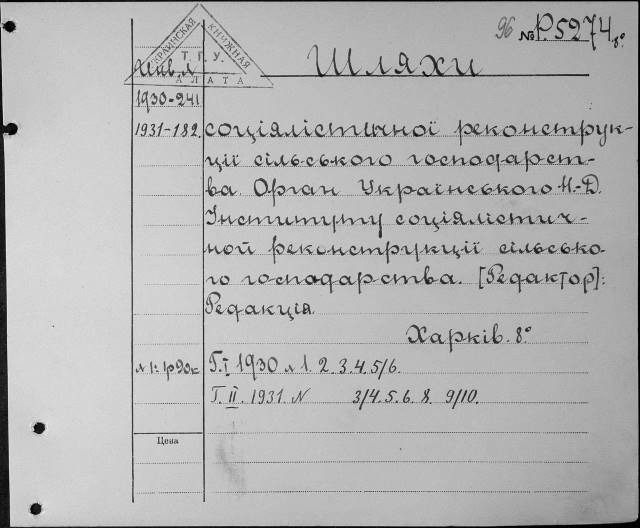 96 № Р.5274 8°
УКРАИНСКАЯ КНИЖНАЯ
Т. Г. У.
ПАЛАТА
Шляхи
1930-241
1931-182. соціялістичної реконструк-
ції сільського господарст-
ва. Орган Українського Н.-Д.
Інституту соціялістич-
ной реконструкції сілсько-
го господарства. [Редактор]:
Редакція.
Харків. 8°
№ 1: 1р90к Г. I 1930 № 1. 2. 3. 4. 5/6.
Г. II. 1931. N 3/4. 5. 6. 8. 9/10.
Цена